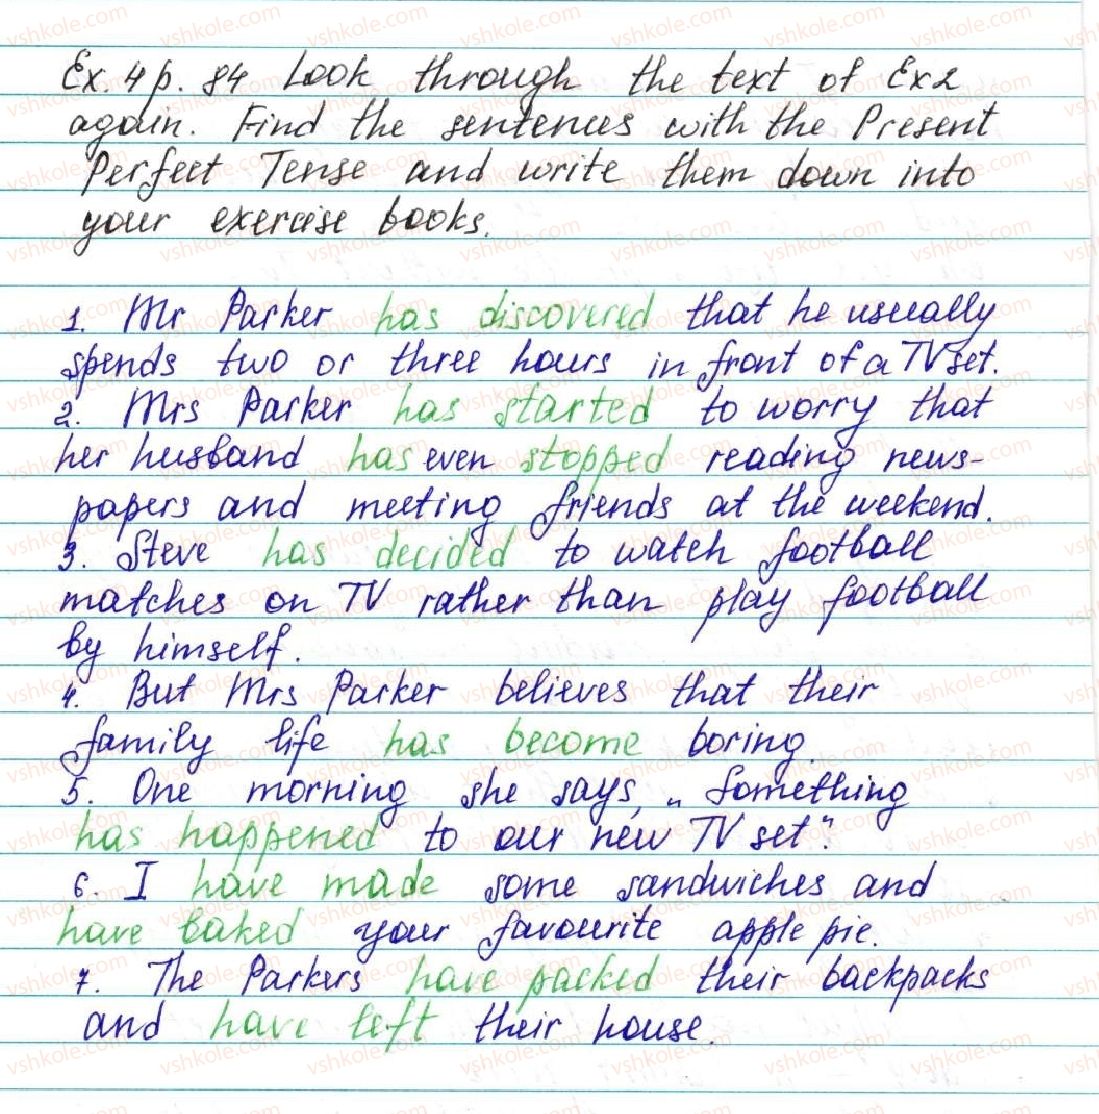 Ex. 4 p. 84 Look through the text of Ex2
again. Find the sentences with the Present
Perfect Tense and write them down into
your exercise books.
1. Mr Parker has discovered that he usually
spends two or three hours in front of a TV set.
2. Mrs Parker has started to worry that
her husband has even stopped reading news-
papers and meeting friends at the weekend.
3. Steve has decided to watch football
matches on TV rather than play football
by himself.
4. But Mrs Parker believes that their
family life has become boring.
5. One morning she says, „Something
has happened to our new TV set".
6. I have made some sandwiches and
have baked your favourite apple pie.
7. The Parkers have packed their backpacks
and have left their house.